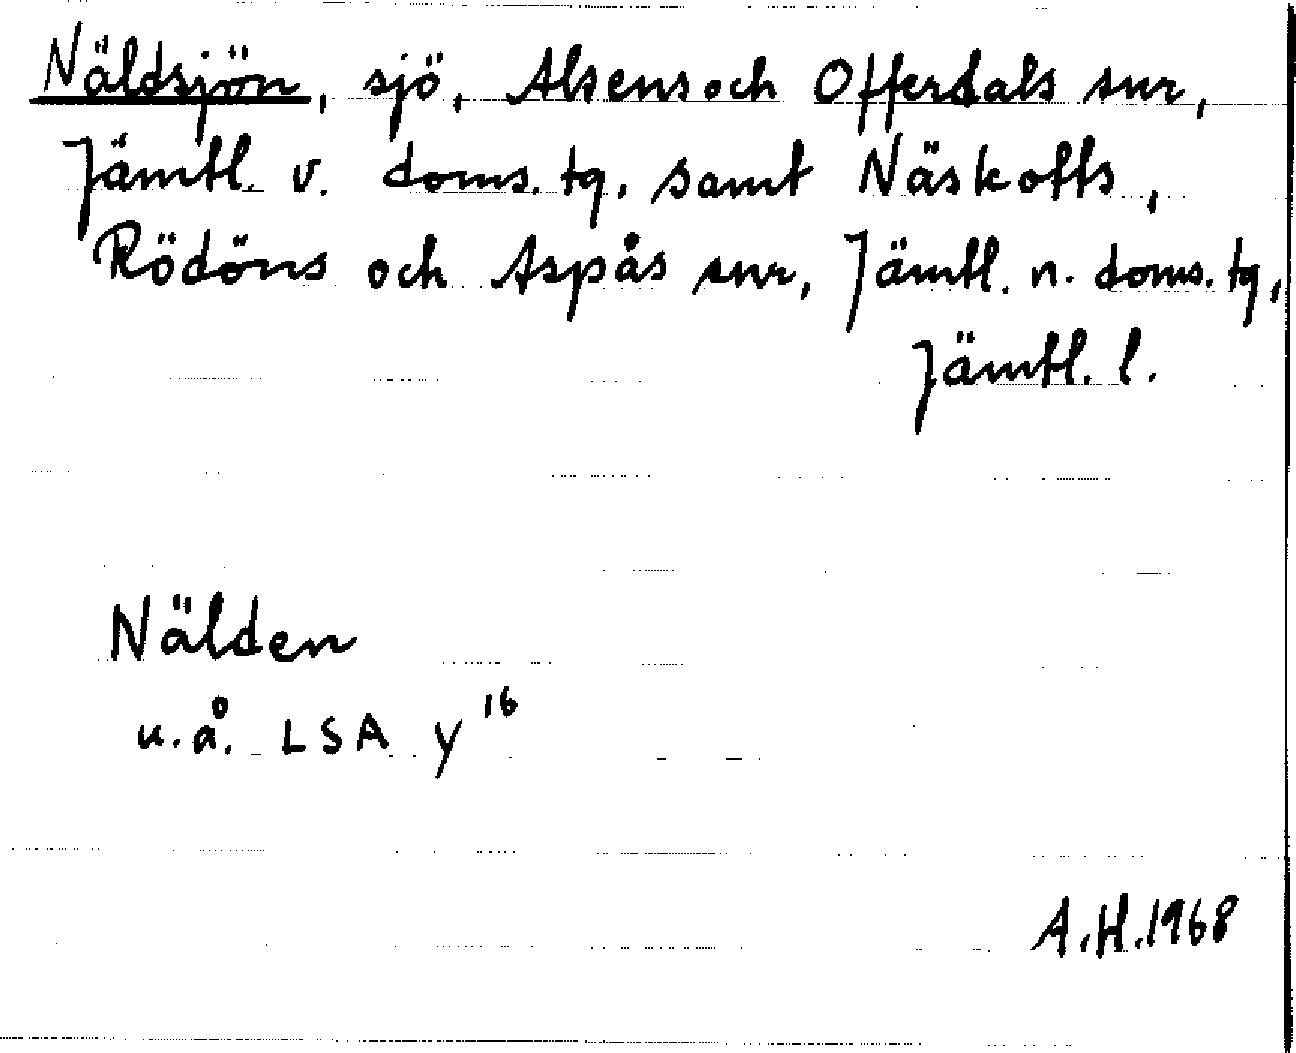 Näldsjön, sjö, Alsens och Offerdals snr,
Jämtl. v. doms. tg. samt Näskotts,
Rödöns och Aspås snr, Jämtl. n. doms. tg,
Jämtl. l.
Nälden
u.å. LSA y¹⁶
A.H. 1968